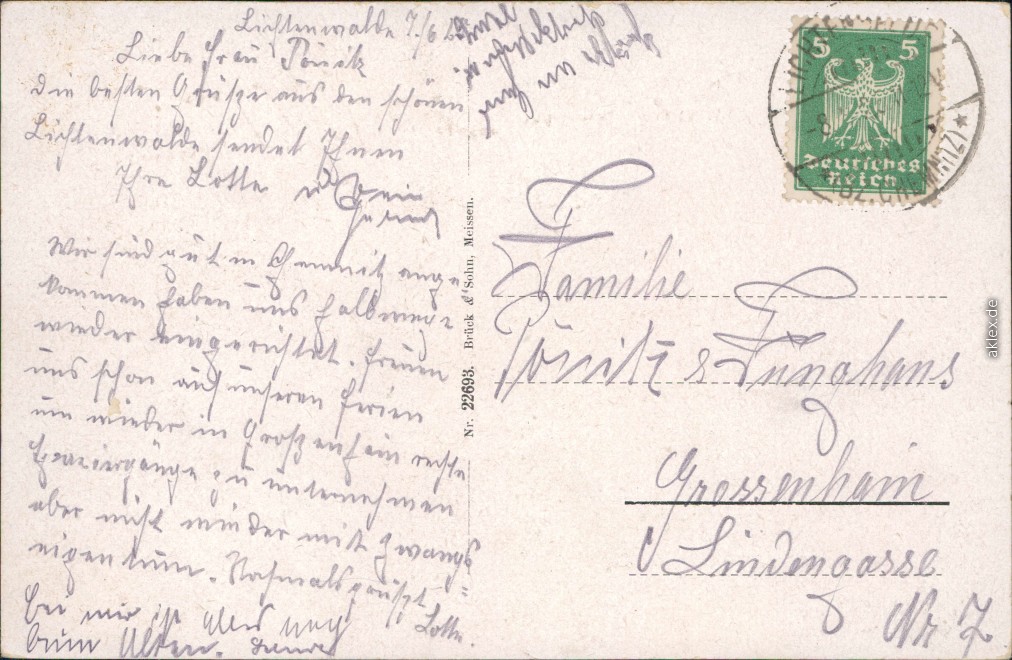 Lichtenwalde 7./6
Liebe Frau Pönitz
Die besten Grüsze aus den schönen
Lichtenwalde sendet Ihnen
Ihre Lotte
Wir sind gut in Chemnitz ange-
kommen haben uns halbwege
wieder eingerichtet. Freuen
uns schon auf unseren Ferien
um wieder in Groszenhain rechte
Spaziergänge zu unternehmen
aber nicht wieder mit Zwangs
eigentum. Nochmals grüszt
Lotte.
Bei mir ist alles noch
beim Alten.
Nr. 22693. Brück & Sohn, Meissen.
5 5
Deutsches
Reich
Familie
Pönitz & Junghans
Grossenhain
Lindengasse
Nr 7
aklex.de